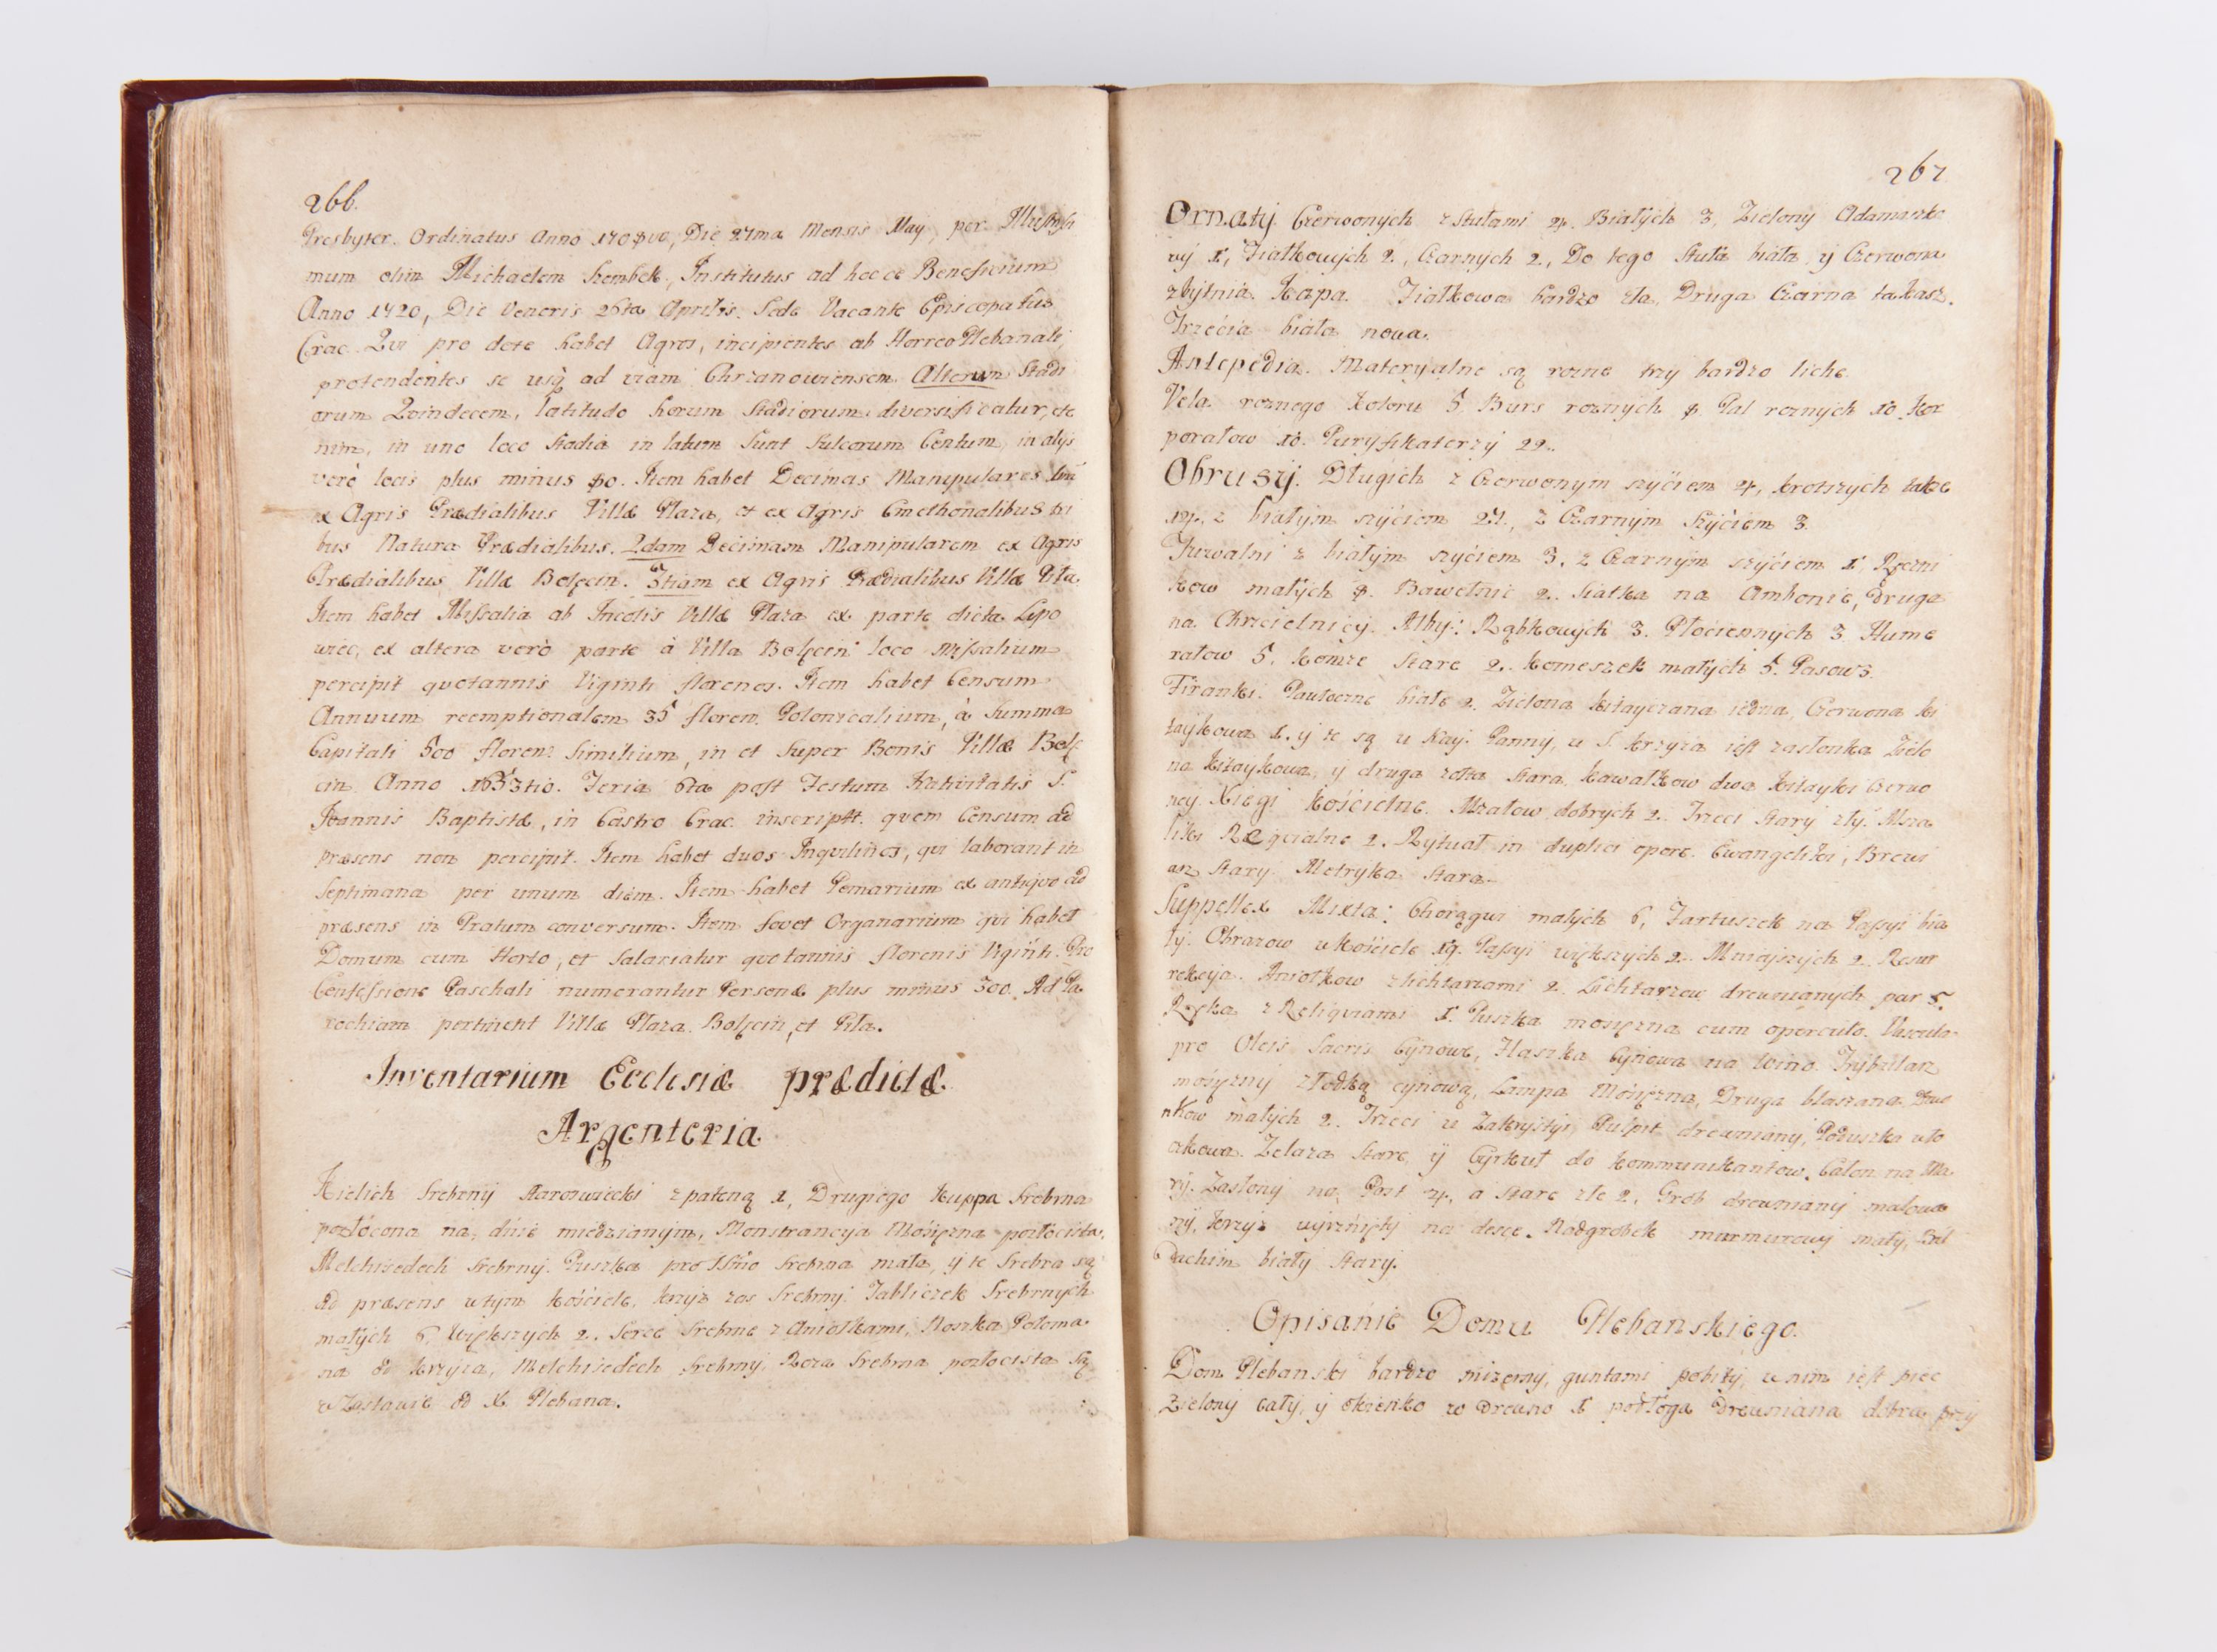 266.
Presbyter. Ordinatus Anno 1708vo, Die 27ma Mensis May, per Illustrissi
mum olim Michaelem Szembek, Institutus ad hocce Beneficium
Anno 1720, Die Veneris 26ta Aprilis. Sede Vacante Episcopatus
Crac. Qui pro dote habet Agros, incipientes ab Horreo Plebanali,
protendentes se usq; ad viam Chrzanowiensem. Alterum Stadi
orum Quindecem, latitudo horum Stadiorum diversificatur, ete
nim, in uno loco Stadia in latum sunt Sulcorum Centum, in alijs
verò locis plus minus 80. Item habet Decimas Manipulares
ex Agris Prædialibus Villæ Płaza, et ex Agris Cmethonalibus si
bus Natura Prædialibus. 2dam Decimam Manipularem ex Agris
Prædialibus Villæ Bolęcin. 3tiam ex Agris Prædialibus Villæ Piła.
Item habet Missalia ab Incolis Villæ Płaza ex parte dicta Lipo
wiec, ex altera verò parte à Villa Bolęcin loco Missalium
percipit quotannis Viginti florenos. Item habet Censum
Annuum reemptionalem 35 floren. Polonicalium, à Summa
Capitali 500 floren: similium, in et super Bonis Villæ Bolę
cin Anno 1653tio. Feria 6ta post Festum Nativitatis S.
Joannis Baptistæ, in Castro Crac. inscript. quem Censum ad
præsens non percipit. Item habet duos Inquilinos, qui laborant in
Septimana per unum diem. Item habet Pomarium ex antiquo ad
præsens in Pratum conversum. Item fovet Organarium qui habet
Domum cum Horto, et Salariatur quotannis florenis Viginti. Pro
Confessione Paschali numerantur Personæ plus minus 300. Ad Pa
rochiam pertinent Villæ Płaza, Bolęcin, et Piła.
Inventarium Ecclesiæ prædictæ.
Argenteria.
Kielich Srebrny Staroswiecki z pateną 1, Drugiego Kuppa Srebrna
pozłocona na dnie miedzianym, Monstrancya Mosiężna pozłocista,
Melchisedech Srebrny. Puszka pro SSmo Srebrna mała, y te Srebra są
ad præsens w tym kościele, krzyż zas Srebrny. Tabliczek Srebrnych
małych 6, większych 2. Serce Srebrne z Aniołkami, Noszka Połama
na od krzyża, Melchisedech Srebrny, Roza Srebrna pozłocista są
w Zastawie od X Plebana.
267
Ornaty Czerwonych z Stułami 4. Białych 3, Zielony Adamaszko
wy 1, Fiałkowych 2, Czarnych 2, Do tego Stuła biała y Czerwona
zbytnia. Kapa Fiałkowa bardzo zła, Druga Czarna takasz.
Trzecia biała nowa.
Antepedia. Materyalne są rozne trzy bardzo liche.
Vela roznego koloru 5, Burs roznych 8. Pal roznych 10. Kor
porałow 10. Puryfikaterzy 22.
Obrusy. Długich z Czerwonym szyciem 4, krotszych takze
z białym szyciem 27, z Czarnym Szyciem 3.
Tuwalni z białym szyciem 3, z Czarnym szyciem 1. Ręczni
kow małych 8. Bawełnic 2. Siatka na Ambonie, druga
na Chrzcielnicy. Alby: Rąbkowych 3. Płociennych 3. Hume
rałow 5. komże Stare 2. komeszek małych 5. Pasow 3.
Firanki. Pautoczne białe 2. Zielona kitayczana iedna, Czerwona ki
taykowa 1. y te są u Nay: Panny, u S. krzyza iest zasłonka Zielo
na kitaykowa, y druga zołta Stara, kawałkow dwa kitayki Czerwo
ney. Xięgi kościelne. Mszałow dobrych 2. Trzeci Stary zły. Msza
liki Requialne 2. Rytuał in duplici opere. Ewangeliki, Brewi
arz Stary. Metryka Stara.
Suppellex Mixta: Chorągwi małych 6, Fartuszek na Passyi bia
ły. Obrazow w kościele 19. Passyi większych 2. Mniejszych 2. Resur
rekcya. Aniołkow z lichtarzami 2. Lichtarzow drewnianych par 5.
Ręka z Reliquiami 1. Puszka mosiężna cum operculo. Vascula
pro Oleis Sacris Cynowe, Flaszka Cynowa na Wino. Trybularz
mosiężny z łodką cynową, Lampa Mosiężna, Druga blaszana. Dzwo
nkow małych 2. Trzeci u Zakrystyi, Pulpit drewniany, Poduszka wło
czkowa. Zelaza Stare y Cyrkuł do kommunikantow. Całon na Ma
ry. Zasłony na Post 4, a Stare złe 2. Grob drewniany malowa
ny, krzyz wyrznięty na desce. Nadgrobek murmurowy mały, Bal
dachim biały Stary.
Opisanie Domu Plebanskiego.
Dom Plebanski bardzo mizerny, guntami pobity, w nim iest piec
Zielony cały, y okienko w Drewno 1 podłoga drewniana dobra przy